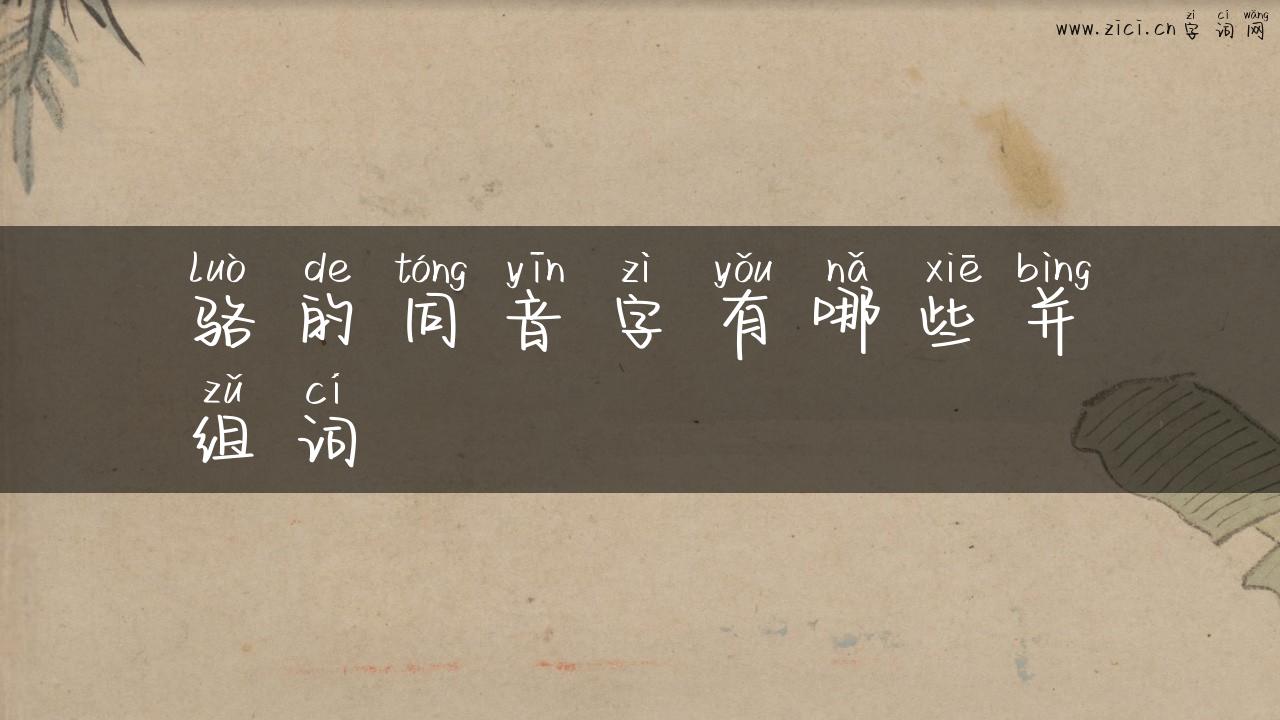 zì cí wǎng
www.zici.cn 字词网
luò de tóng yīn zì yǒu nǎ xiē bìng
骆的同音字有哪些并
zǔ cí
组词